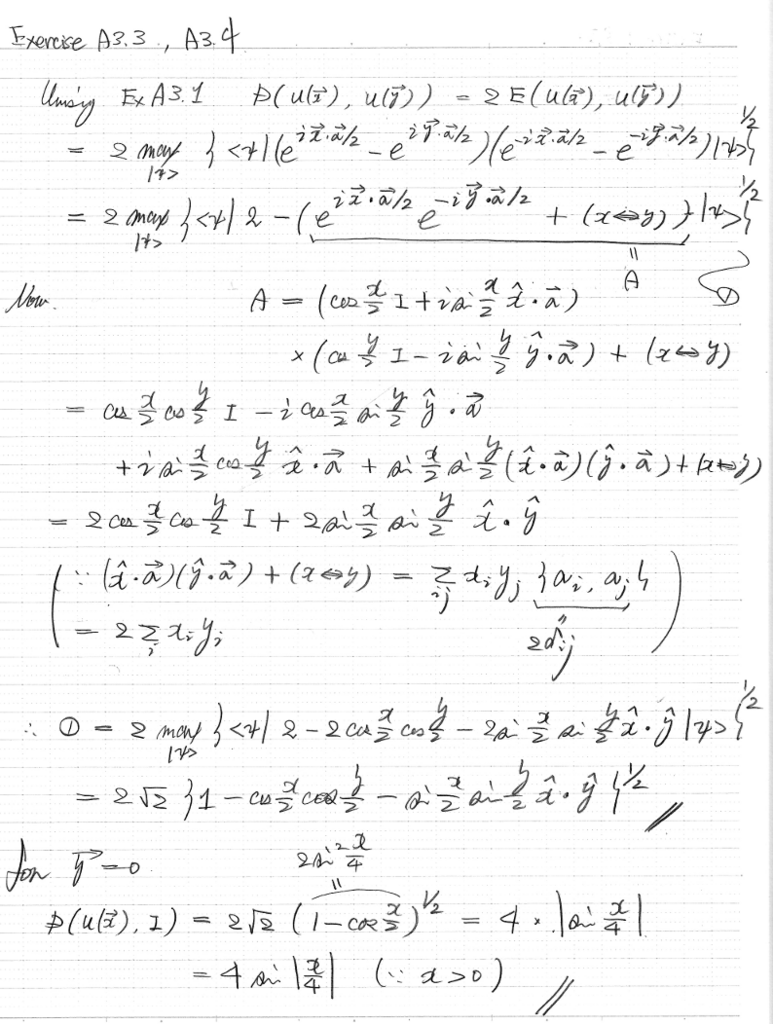 Exercise A3.3, A3.4
Using Ex A3.1 D(U(x⃗), U(y⃗)) = 2E(U(x⃗), U(y⃗))
= 2 max { <ψ|(e^{ix⃗·a⃗/2} - e^{iy⃗·a⃗/2})(e^{-ix⃗·a⃗/2} - e^{-iy⃗·a⃗/2})|ψ> }^{1/2}
|ψ>
= 2 max { <ψ| 2 - (e^{ix⃗·a⃗/2} e^{-iy⃗·a⃗/2} + (x⇔y) } |ψ> }^{1/2}
|ψ>
= A ①
Now. A = (cos x/2 I + i sin x/2 x̂·a⃗)
× (cos y/2 I - i sin y/2 ŷ·a⃗) + (x⇔y)
= cos x/2 cos y/2 I - i cos x/2 sin y/2 ŷ·a⃗
+ i sin x/2 cos y/2 x̂·a⃗ + sin x/2 sin y/2 (x̂·a⃗)(ŷ·a⃗) + (x⇔y)
= 2 cos x/2 cos y/2 I + 2 sin x/2 sin y/2 x̂·ŷ
( ∵ (x̂·a⃗)(ŷ·a⃗) + (x⇔y) = Σ_{ij} x_i y_j {a_i, a_j}
= 2 Σ_i x_i y_i 2δ_{ij} )
∴ ① = 2 max { <ψ| 2 - 2 cos x/2 cos y/2 - 2 sin x/2 sin y/2 x̂·ŷ |ψ> }^{1/2}
|ψ>
= 2√2 { 1 - cos x/2 cos y/2 - sin x/2 sin y/2 x̂·ŷ }^{1/2} //
for y⃗ = 0 2 sin² x/4
D(U(x⃗), I) = 2√2 (1 - cos x/2)^{1/2} = 4 × |sin x/4|
= 4 sin |x/4| (∵ x > 0) //